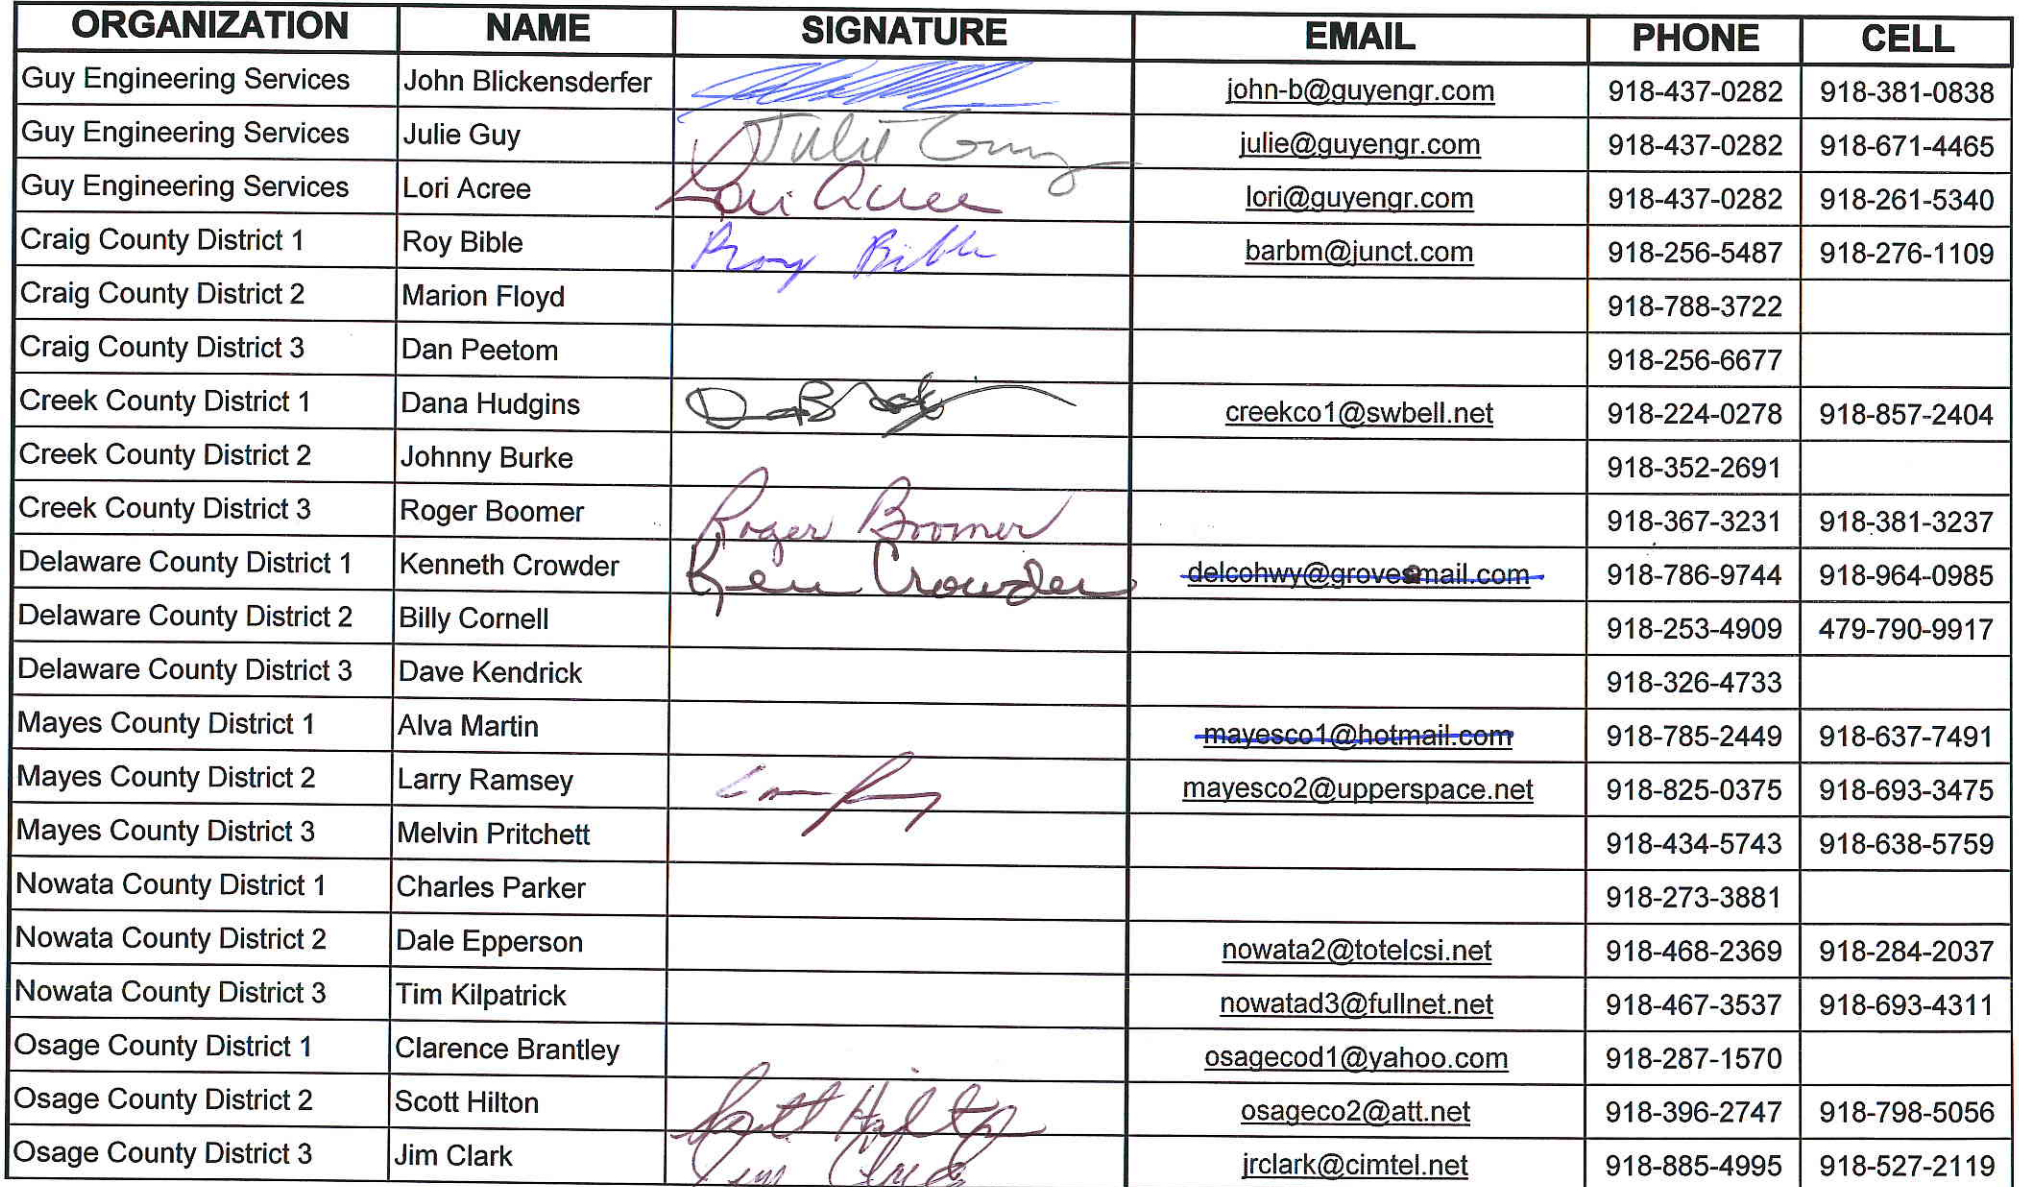 ORGANIZATION NAME SIGNATURE EMAIL PHONE CELL
Guy Engineering Services John Blickensderfer john-b@guyengr.com 918-437-0282 918-381-0838
Guy Engineering Services Julie Guy Julie Guy julie@guyengr.com 918-437-0282 918-671-4465
Guy Engineering Services Lori Acree Lori Acree lori@guyengr.com 918-437-0282 918-261-5340
Craig County District 1 Roy Bible Roy Bible barbm@junct.com 918-256-5487 918-276-1109
Craig County District 2 Marion Floyd 918-788-3722
Craig County District 3 Dan Peetom 918-256-6677
Creek County District 1 Dana Hudgins creekco1@swbell.net 918-224-0278 918-857-2404
Creek County District 2 Johnny Burke 918-352-2691
Creek County District 3 Roger Boomer Roger Boomer 918-367-3231 918-381-3237
Delaware County District 1 Kenneth Crowder Ken Crowder delcohwy@groveemail.com 918-786-9744 918-964-0985
Delaware County District 2 Billy Cornell 918-253-4909 479-790-9917
Delaware County District 3 Dave Kendrick 918-326-4733
Mayes County District 1 Alva Martin mayesco1@hotmail.com 918-785-2449 918-637-7491
Mayes County District 2 Larry Ramsey mayesco2@upperspace.net 918-825-0375 918-693-3475
Mayes County District 3 Melvin Pritchett 918-434-5743 918-638-5759
Nowata County District 1 Charles Parker 918-273-3881
Nowata County District 2 Dale Epperson nowata2@totelcsi.net 918-468-2369 918-284-2037
Nowata County District 3 Tim Kilpatrick nowatad3@fullnet.net 918-467-3537 918-693-4311
Osage County District 1 Clarence Brantley osagecod1@yahoo.com 918-287-1570
Osage County District 2 Scott Hilton Scott Hilton osageco2@att.net 918-396-2747 918-798-5056
Osage County District 3 Jim Clark Jim Clark jrclark@cimtel.net 918-885-4995 918-527-2119